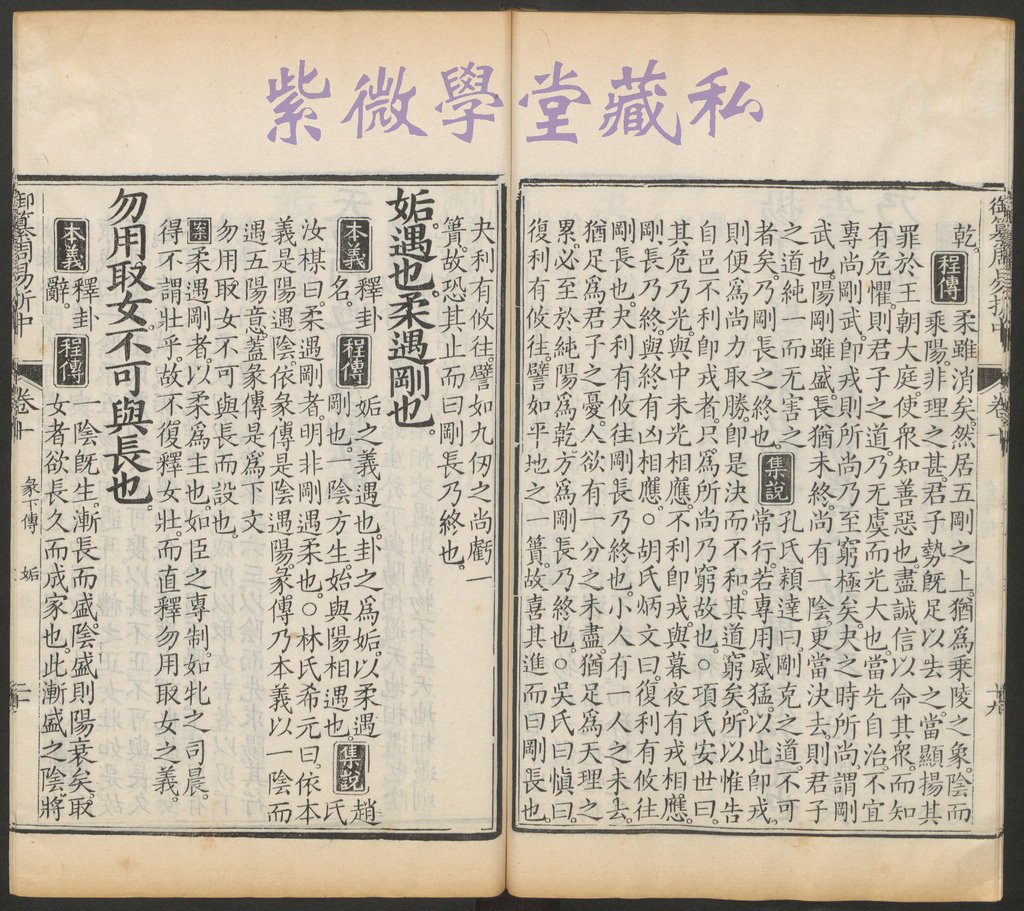 紫微學堂藏私
乾。
程傳
柔雖消矣。然居五剛之上。猶爲乘陵之象。陰而
乘陽。非理之甚。君子勢旣足以去之。當顯揚其
罪於王朝大庭。使衆知善惡也。盡誠信以命其衆。而知
有危懼。則君子之道。乃无虞而光大也。當先自治。不宜
專尚剛武。卽戎則所尚乃至窮極矣。夬之時所尚謂剛
武也。陽剛雖盛。長猶未終。尚有一陰。更當決去。則君子
之道純一而无害之
者矣。乃剛長之終也。
集說
孔氏穎達曰。剛克之道。不可
常行。若專用威猛。以此卽戎。
則便爲尚力取勝。卽是決而不和。其道窮矣。所以惟告
自邑。不利卽戎者。只爲所尚乃窮故也。○項氏安世曰。
其危乃光。與中未光相應。不利卽戎。與暮夜有戎相應。
剛長乃終。與終有凶相應。○胡氏炳文曰。復利有攸往
剛長也。夬利有攸往。剛長乃終也。小人有一人之未去
猶足爲君子之憂。人欲有一分之未盡。猶足爲天理之
累。必至於純陽爲乾。方爲剛長乃終也。○吳氏曰愼曰。
復利有攸往。譬如平地之一簣。故喜其進而曰剛長也。
夬利有攸往。譬如九仞之尚虧一
簣。故恐其止而曰剛長乃終也。
姤遇也。柔遇剛也。
本義
釋卦
名。
程傳
姤之義遇也。卦之爲姤。以柔遇
剛也。一陰方生。始與陽相遇也。
集說
趙
氏
汝楳曰。柔遇剛者。明非剛遇柔也。○林氏希元曰。依本
義是陽遇陰。依彖傳是陰遇陽。彖傳乃本義以一陰而
遇五陽意。蓋彖傳是爲下文
勿用取女不可與長而設也。
案
柔遇剛者。以柔爲主也。如臣之專制。如牝之司晨。
得不謂壯乎。故不復釋女壯。而直釋勿用取女之義。
勿用取女。不可與長也。
本義
釋卦
辭。
程傳
一陰旣生。漸長而盛。陰盛則陽衰矣。取
女者欲長久而成家也。此漸盛之陰。將
御纂周易折中
卷十
彖下傳
姤